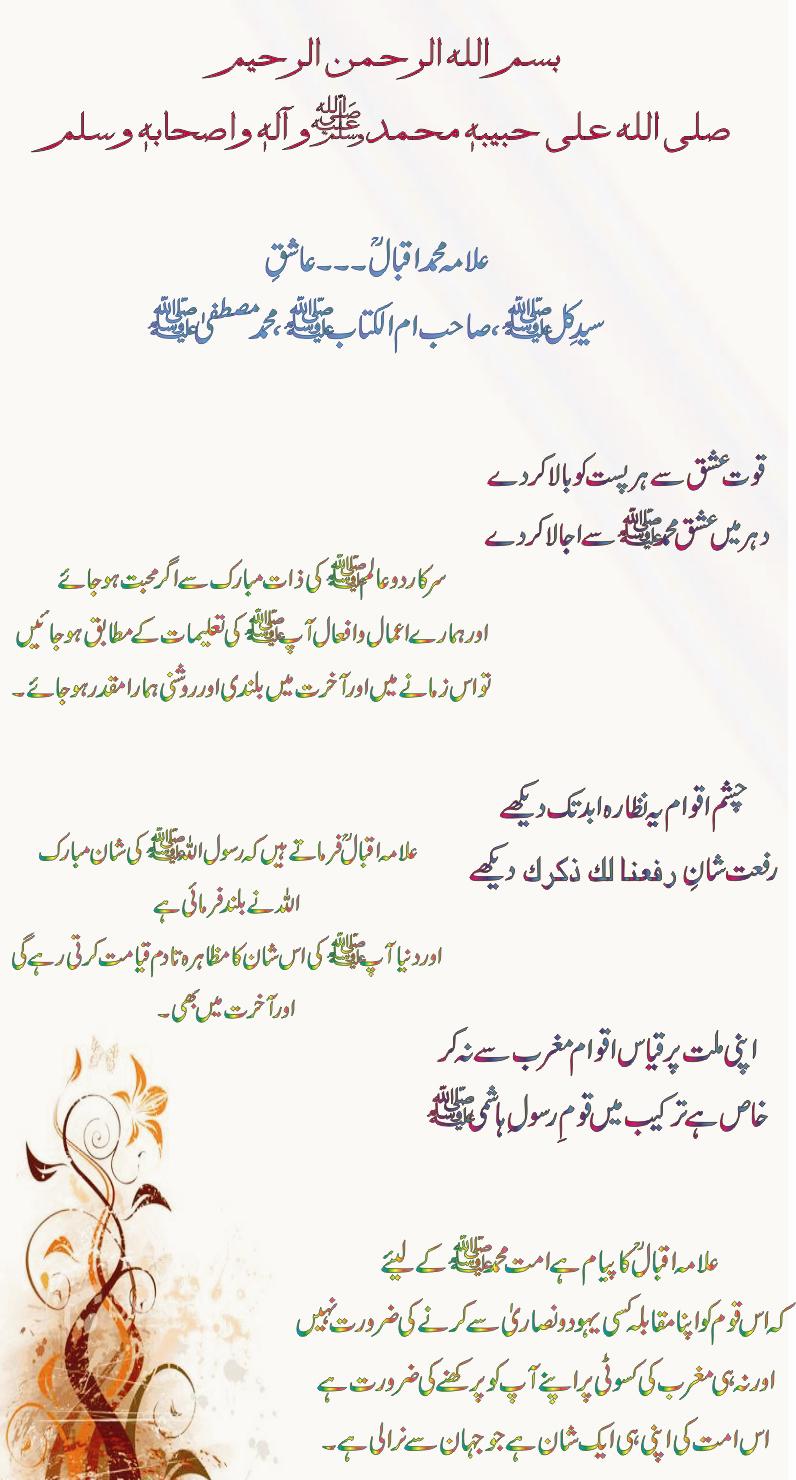 بسم الله الرحمن الرحيم
صلى الله على حبيبهٖ محمدﷺ وآلهٖ واصحابهٖ وسلم
علامہ محمد اقبالؒ ۔۔۔ عاشقِ
سیدِ کلﷺ، صاحب ام الکتابﷺ، محمد مصطفیٰﷺ
قوت عشق سے ہر پست کو بالا کر دے
دہر میں عشق محمدﷺ سے اجالا کر دے
سرکار دو عالمﷺ کی ذات مبارک سے اگر محبت ہو جائے
اور ہمارے اعمال و افعال آپﷺ کی تعلیمات کے مطابق ہو جائیں
تو اس زمانے میں اور آخرت میں بلندی اور روشنی ہمارا مقدر ہو جائے۔
چشم اقوام یہ نظارہ ابد تک دیکھے
رفعت شانِ رفعنا لك ذكرك دیکھے
علامہ اقبالؒ فرماتے ہیں کہ رسول اللہﷺ کی شان مبارک
اللہ نے بلند فرمائی ہے
اور دنیا آپﷺ کی اس شان کا مظاہرہ تا دم قیامت کرتی رہے گی
اور آخرت میں بھی۔
اپنی ملت پر قیاس اقوام مغرب سے نہ کر
خاص ہے ترکیب میں قومِ رسولِ ہاشمیﷺ
علامہ اقبالؒ کا پیام ہے امت محمدﷺ کے لیئے
کہ اس قوم کو اپنا مقابلہ کسی یہود و نصاریٰ سے کرنے کی ضرورت نہیں
اور نہ ہی مغرب کی کسوٹی پر اپنے آپ کو پرکھنے کی ضرورت ہے
اس امت کی اپنی ہی ایک شان ہے جو جہان سے نرالی ہے۔